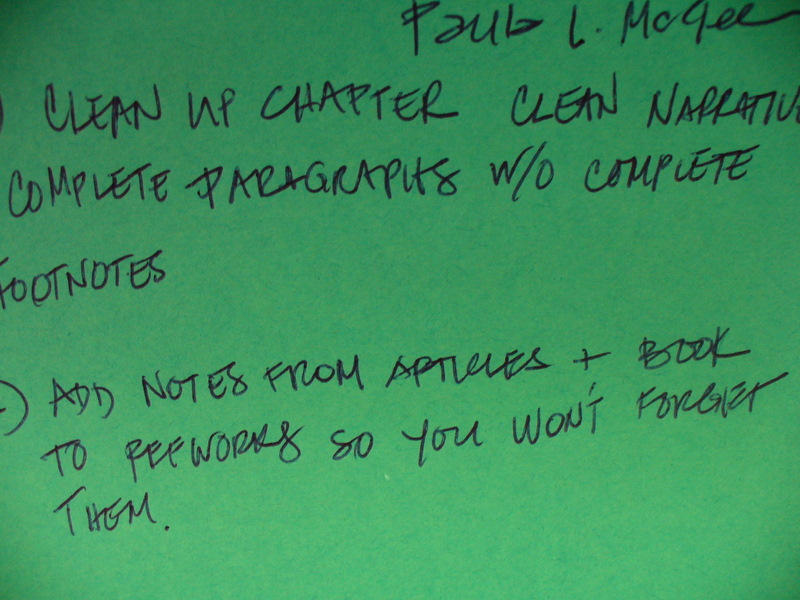 Paula L. McGee
) CLEAN UP CHAPTER CLEAN NARRATIVE
COMPLETE PARAGRAPHS W/O COMPLETE
FOOTNOTES
) ADD NOTES FROM ARTICLES + BOOK
TO REFWORKS SO YOU WON'T FORGET
THEM.